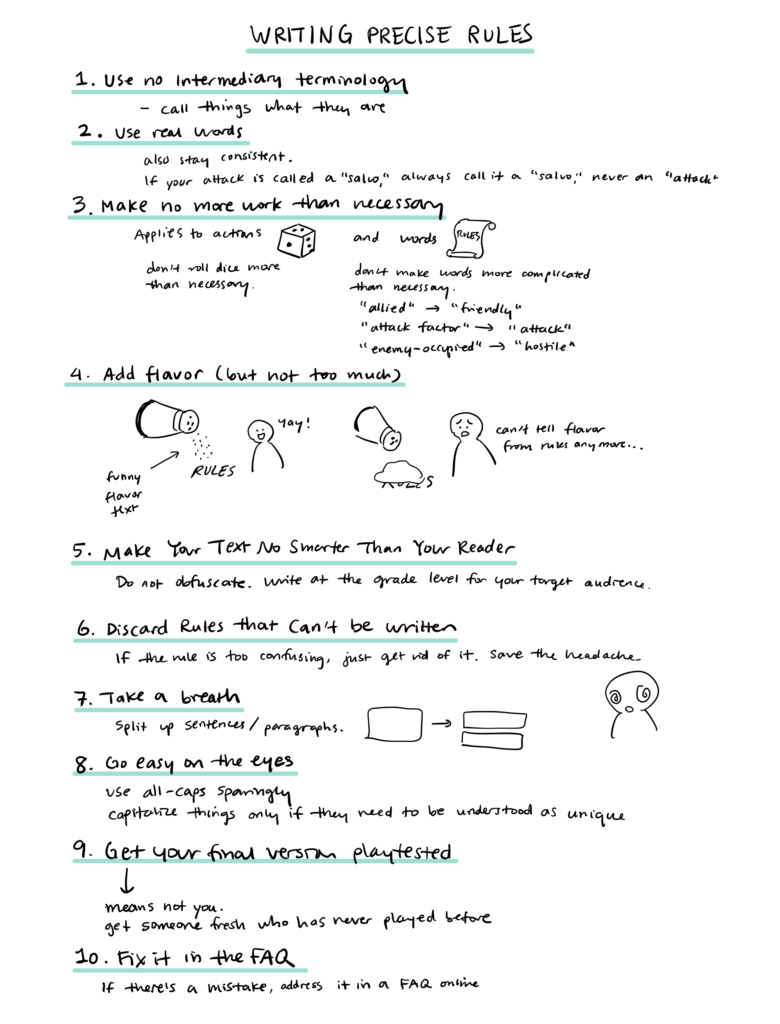 WRITING PRECISE RULES
1. Use no Intermediary terminology
- call things what they are
2. Use real words
also stay consistent.
If your attack is called a "salvo," always call it a "salvo," never an "attack"
3. Make no more work than necessary
Applies to actions
and words
RULES
don't roll dice more
than necessary.
don't make words more complicated
than necessary.
"allied" → "friendly"
"attack factor" → "attack"
"enemy-occupied" → "hostile"
4. Add flavor (but not too much)
yay!
can't tell flavor
from rules any more...
RULES
RULES
funny
flavor
text
5. Make Your Text No Smarter Than Your Reader
Do not obfuscate. Write at the grade level for your target audience.
6. Discard Rules that Can't be written
If the rule is too confusing, just get rid of it. Save the headache.
7. Take a breath
Split up sentences/paragraphs.
8. Go easy on the eyes
use all-caps sparingly
capitalize things only if they need to be understood as unique
9. Get your final version playtested
means not you.
get someone fresh who has never played before
10. Fix it in the FAQ
If there's a mistake, address it in a FAQ online